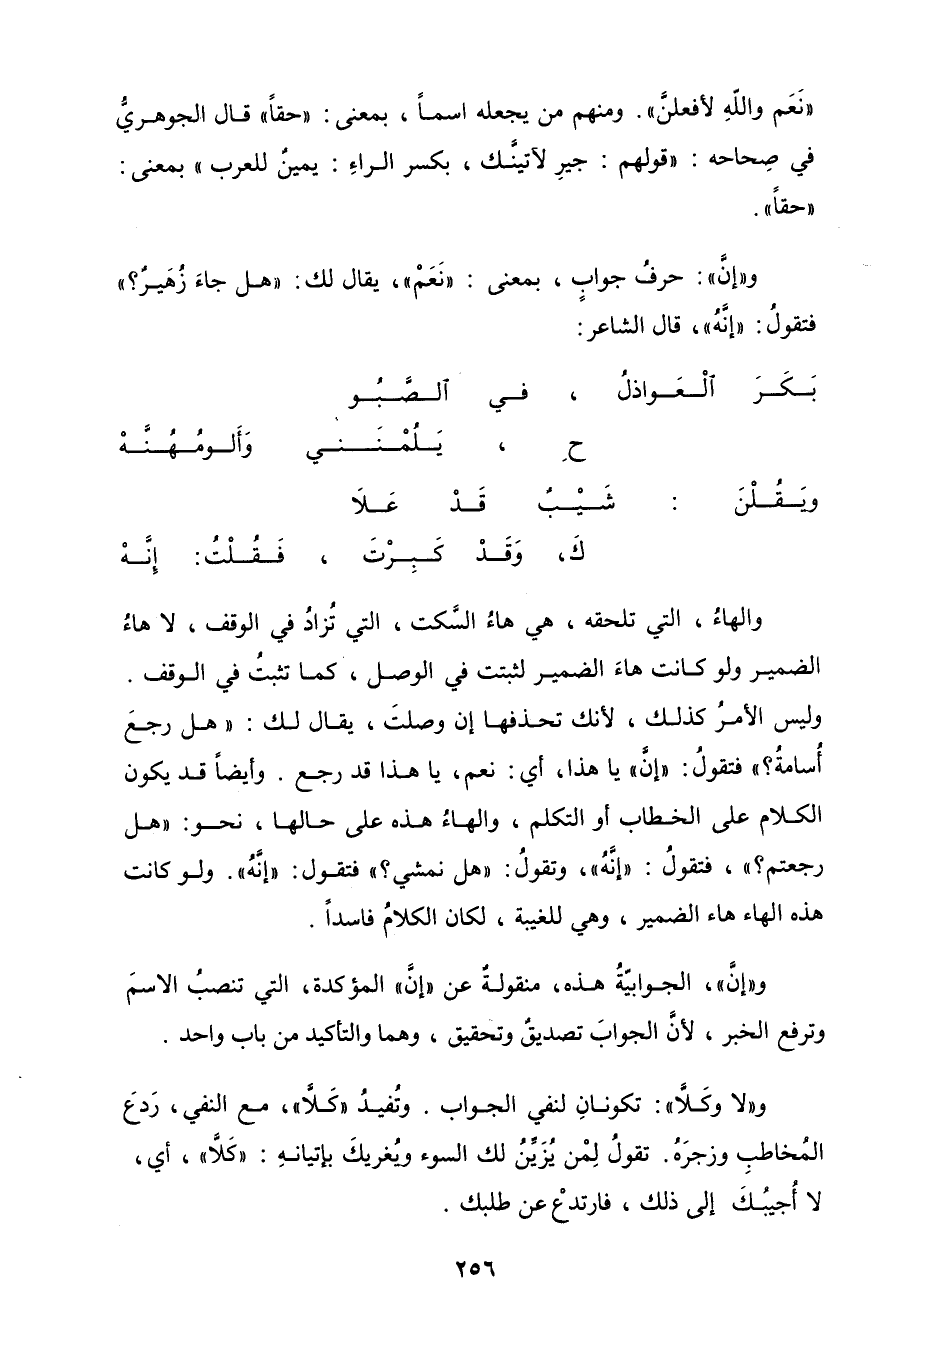 «نَعَم واللّهِ لأفعلنَّ». ومنهم من يجعله اسماً ، بمعنى : «حقاً» قال الجوهريُّ
في صِحاحه : «قولهم : جيرِ لآتينَّك ، بكسر الراءِ : يمينٌ للعرب » بمعنى :
«حقاً» .
و«إنَّ»: حرفُ جوابٍ ، بمعنى : «نَعَمْ»، يقال لك: «هل جاءَ زُهَيرٌ؟»
فتقولُ: «إنَّهُ»، قال الشاعر:
بَكَرَ ٱلْعَواذلُ ، في ٱلصَّبُو
حِ ، يَلُمْنَني وَأَلومُهُنَّهْ
ويَقُلْنَ : شَيْبٌ قَدْ عَلَا
كَ، وَقَدْ كَبِرْتَ ، فَقُلْتُ: إنَّهْ
والهاءُ ، التي تلحقه ، هي هاءُ السَّكت ، التي تُزادُ في الوقف ، لا هاءُ
الضمير ولو كانت هاءَ الضمير لثبتت في الوصل ، كما تثبتُ في الوقف .
وليس الأمرُ كذلك ، لأنك تحذفها إن وصلتَ ، يقال لك : « هل رجعَ
أُسامةُ؟» فتقولُ: «إنَّ» يا هذا، أي: نعم، يا هذا قد رجع . وأيضاً قد يكون
الكلام على الخطاب أو التكلم ، والهاءُ هذه على حالها ، نحو: «هل
رجعتم؟» ، فتقولُ : «إنَّهُ»، وتقولُ: «هل نمشي؟» فتقول: «إنَّهُ». ولو كانت
هذه الهاء هاء الضمير ، وهي للغيبة ، لكان الكلامُ فاسداً .
و«إنَّ»، الجوابيّةُ هذه، منقولةٌ عن «إنَّ» المؤكدة، التي تنصبُ الاسمَ
وترفع الخبر ، لأنَّ الجوابَ تصديقٌ وتحقيق ، وهما والتأكيد من باب واحد .
و«لا وكَلَّا»: تكونانِ لنفي الجواب . وتُفيدُ «كَلَّا»، مع النفي، رَدعَ
المُخاطبِ وزجرَهُ. تقولُ لِمْن يُزَيِّنُ لك السوء ويُغريكَ بإتيانهِ : «كَلَّا» ، أي،
لا أُجيبُكَ إلى ذلك ، فارتدعْ عن طلبك .
٢٥٦